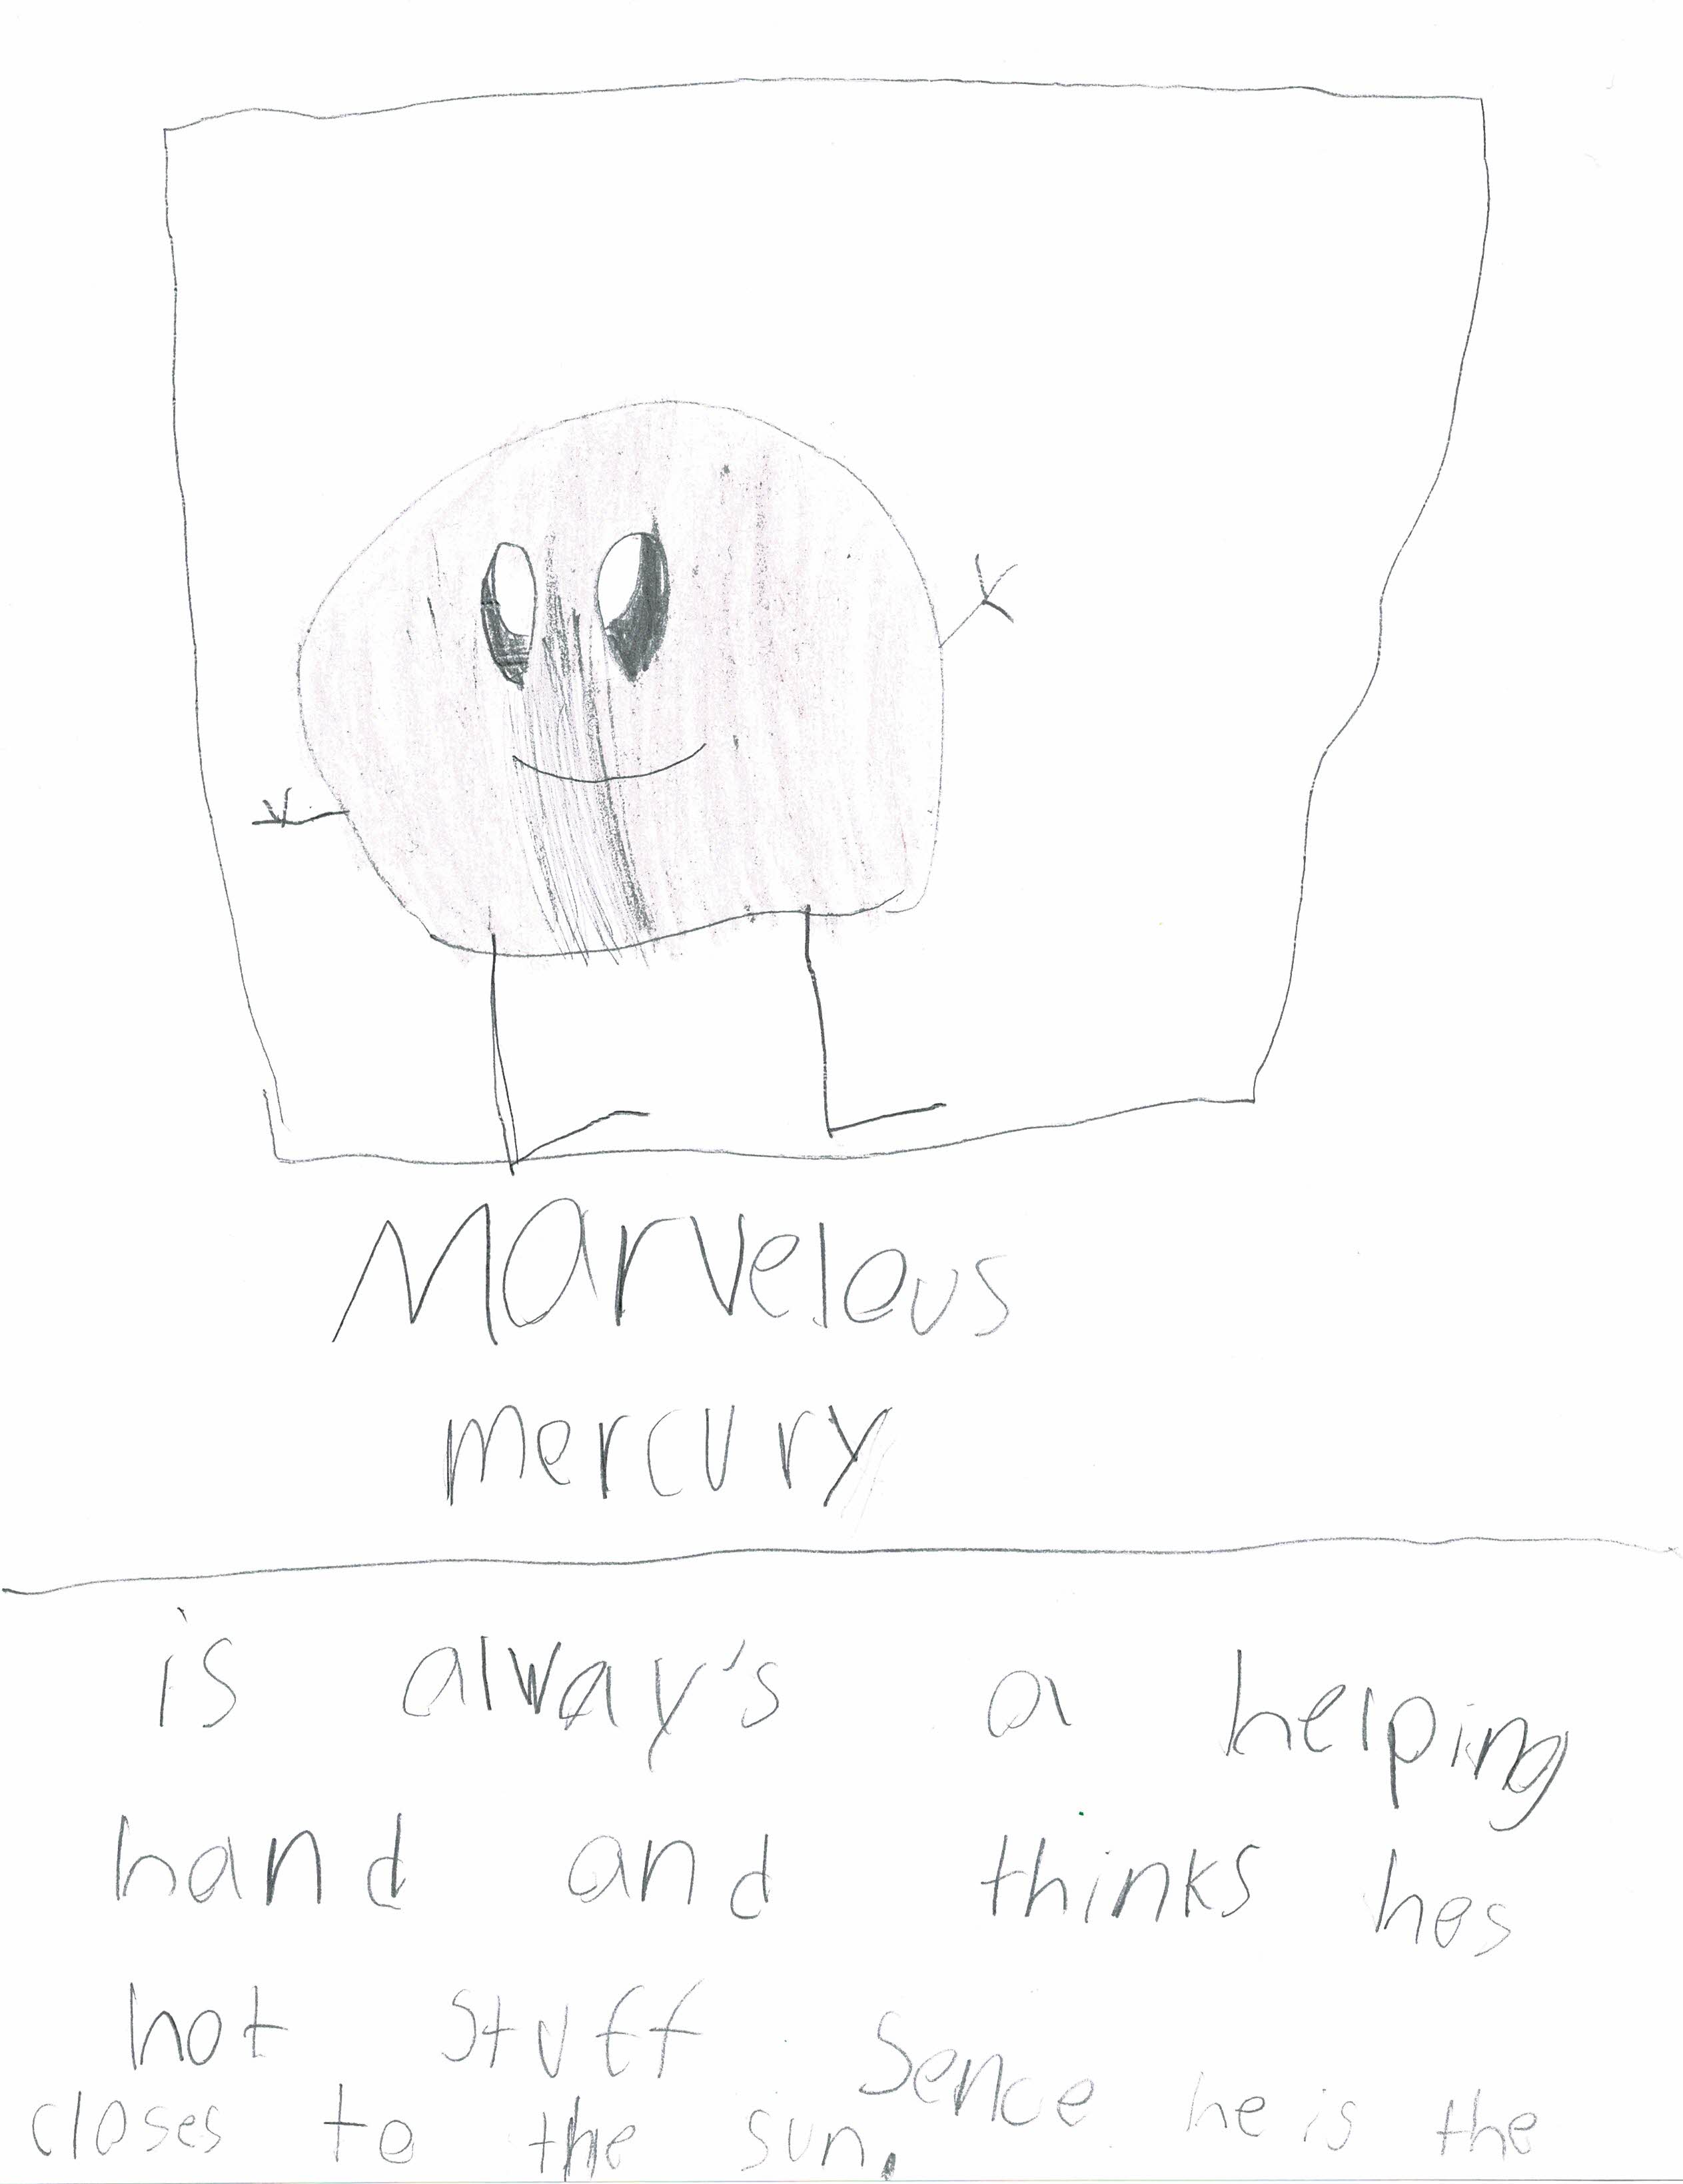 Marvelous
mercury
is alway's a helping
hand and thinks hes
hot stuff. Sence he is the
closes to the sun.